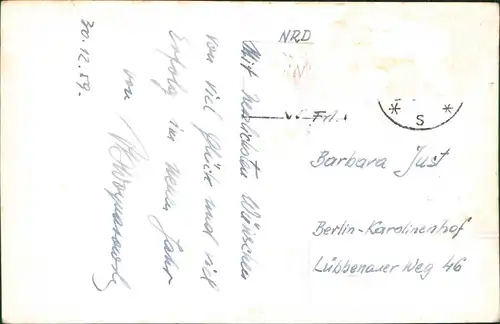 30.12.59.
Mit herzlichsten Wünschen
von viel Glück und viel
Erfolg im neuen Jahr
von
NRD
Frl.
Barbara Just
Berlin-Karolinenhof
Lübbenauer Weg 46
* S *